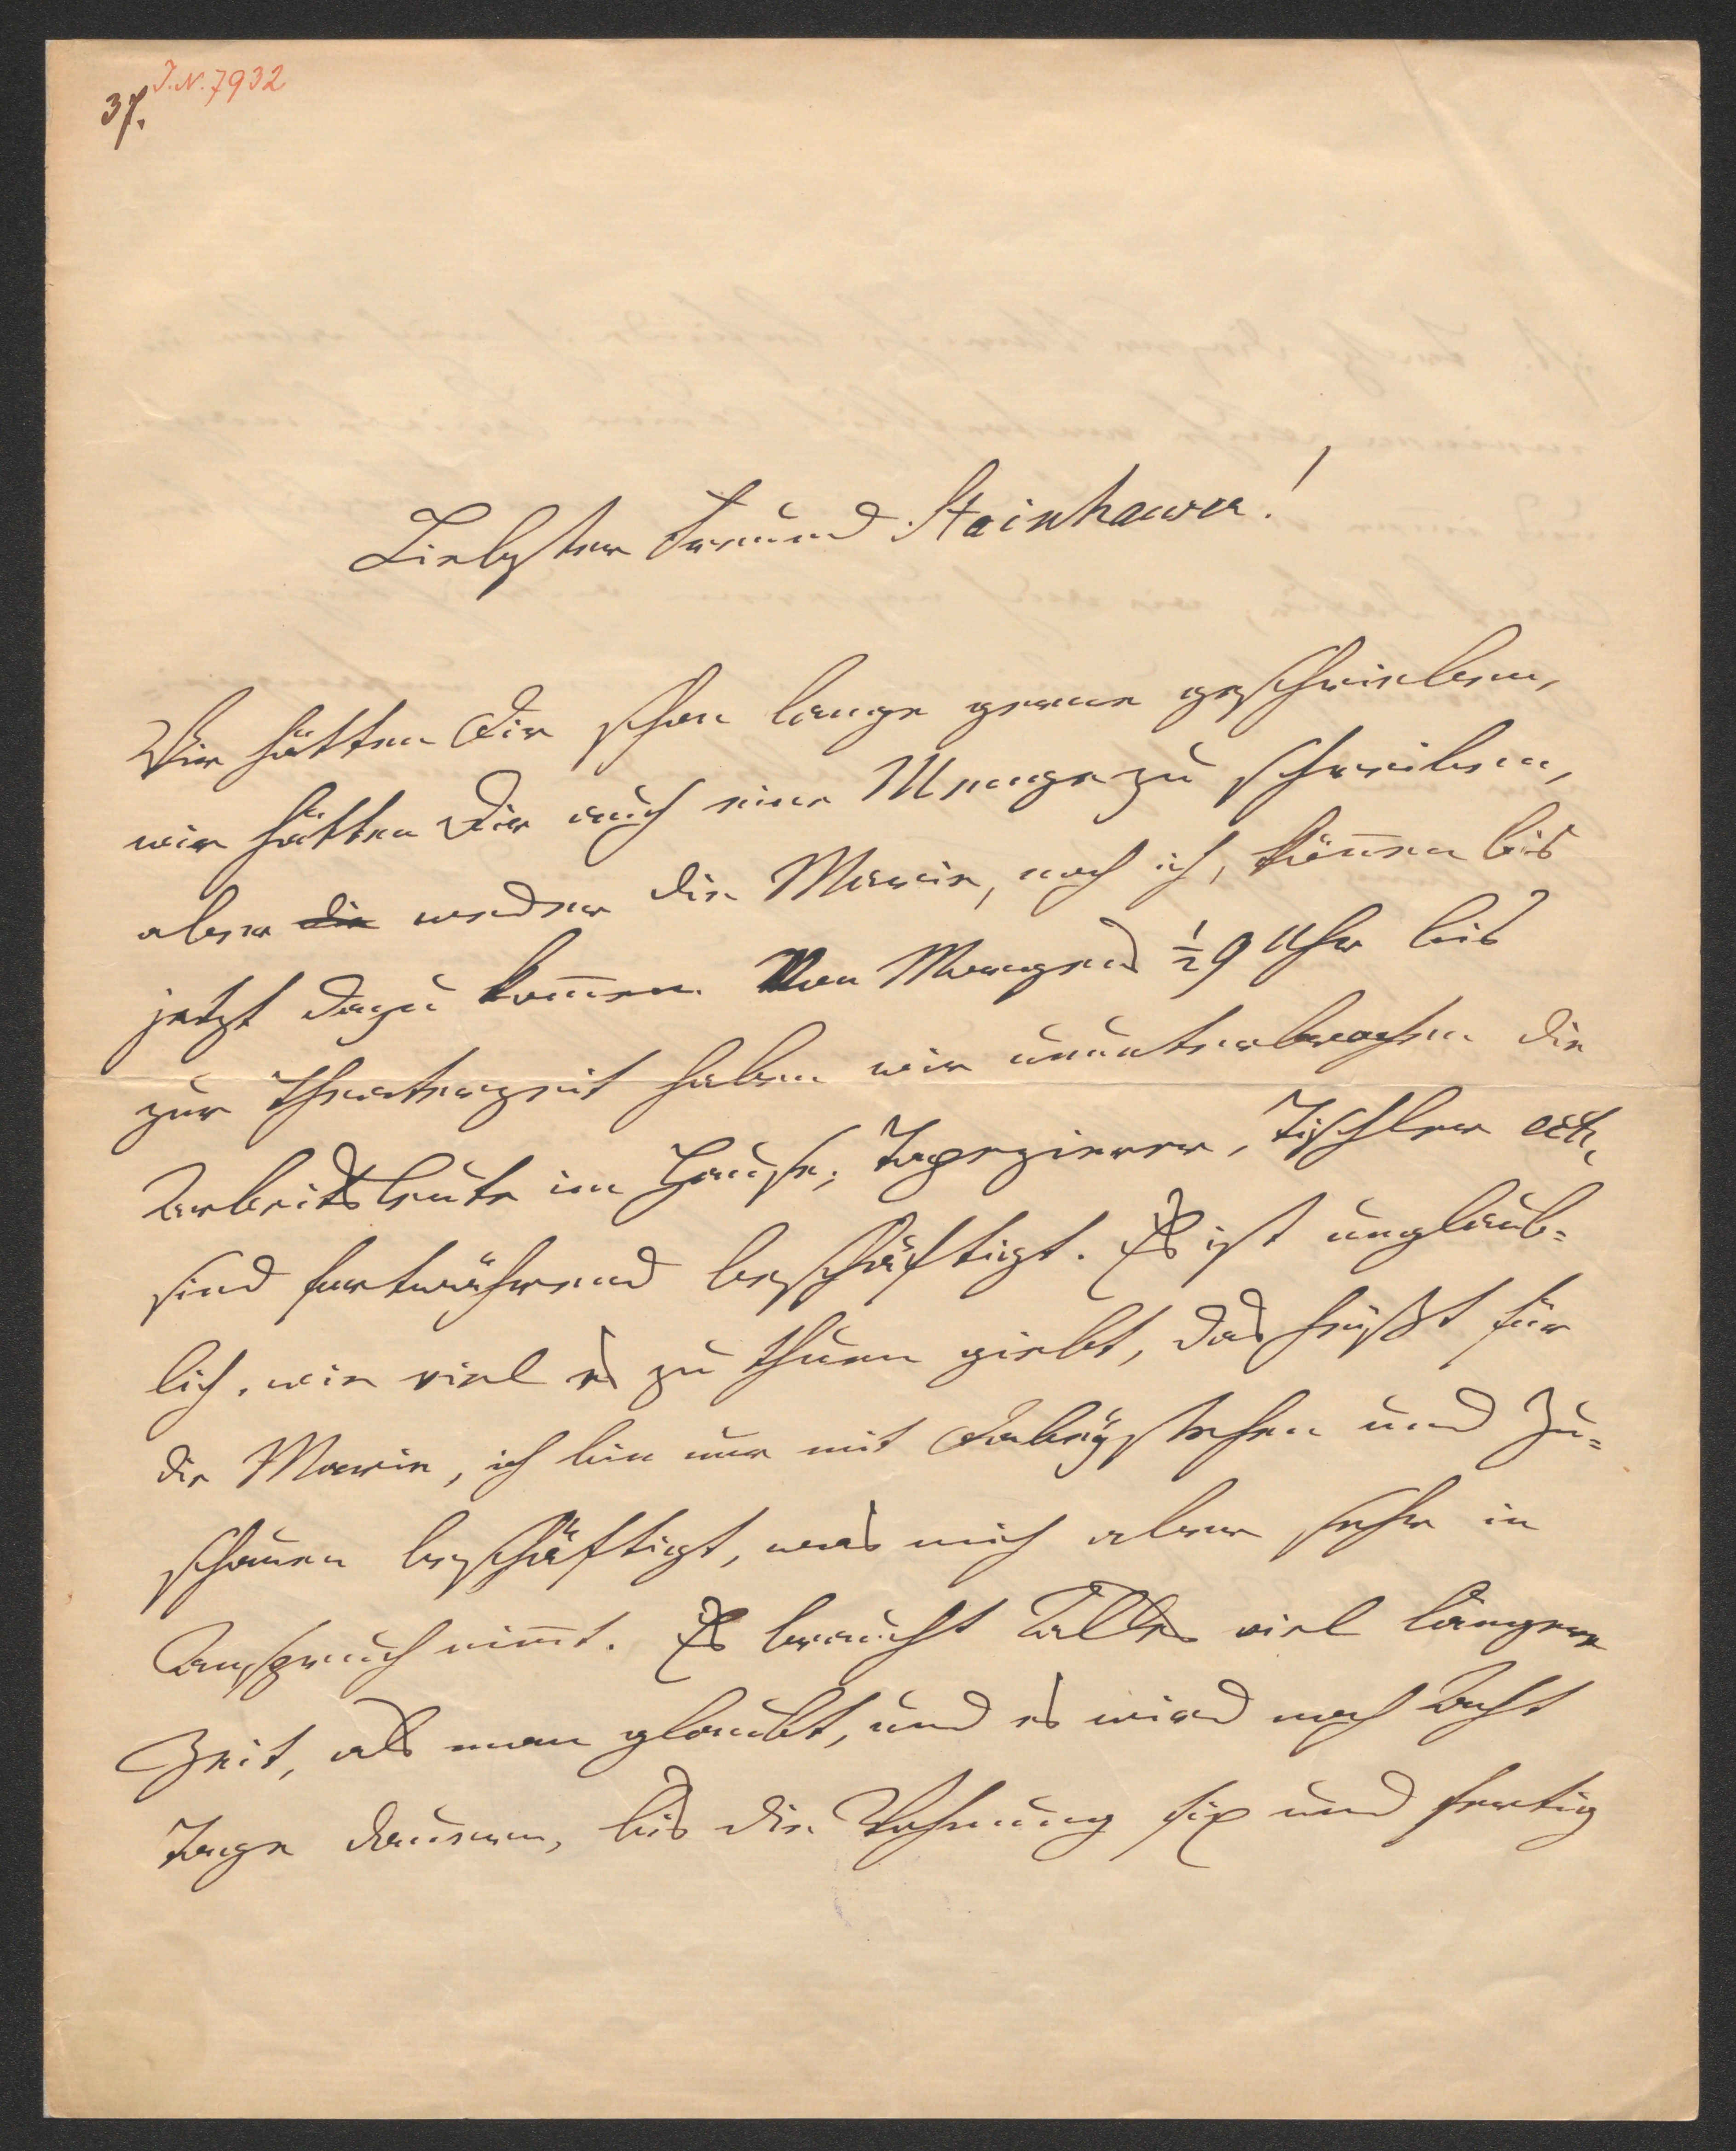 J.N. 7932
37.
Liebster Freund Steinhauser!
Wir hätten Dir schon lange gerne geschrieben,
wir hätten Dir auch eine Menge zu schreiben,
aber die weder die Marie, noch ich, koñen bis
jetzt dazu kom̃en. Von Morgens ½9 Uhr bis
zur Theaterzeit haben wir ununterbrochen die
Arbeitsleute im Hause; Tapezierer, Tischler ect,
sind fortwährend beschäftigt. Es ist unglaub=
lich, wie viel es zu thuen giebt, das heißt für
die Marie, ich bin nur mit Dabeÿstehen und Zu=
schauen beschäftigt, was mich aber sehr in
Anspruch nim̃t. Es braucht Alles viel längere
Zeit, als man glaubt, und es wird noch Acht
Tage dauern, bis die Wohnung fix und fertig